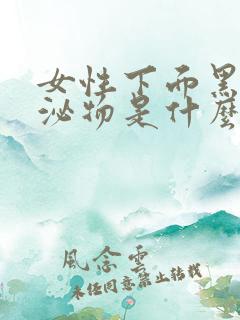 女性下面黑
泌物是什麼
風念雲
未经同意禁止转载